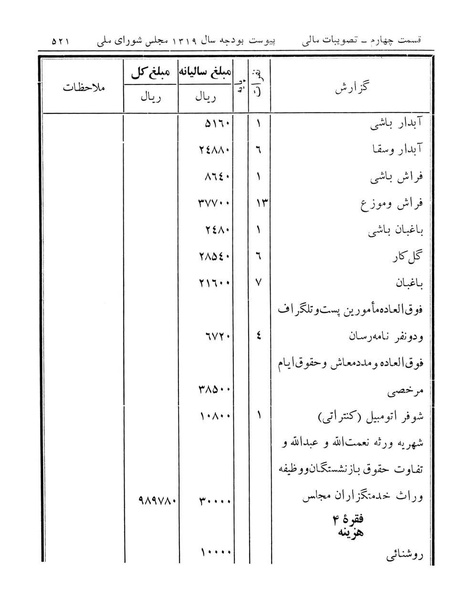 قسمت چهارم ــ تصویبات مالی    پیوست بودجه سال ۱۳۱۹ مجلس شورای ملی    ۵۲۱
گزارش    نفرات    پایه    مبلغ سالیانه ریال    مبلغ کل ریال    ملاحظات
آبدار باشی    ۱    ۵۱۶۰
آبدار وسقا    ۶    ۲٤۸۸۰
فراش باشی    ۱    ۸٦٤۰
فراش وموزع    ۱۳    ۳۷۷۰۰
باغبان باشی    ۱    ۲٤۸۰
گل کار    ۶    ۲۸۵٤۰
باغبان    ۷    ۲۱٦۰۰
فوق‌العاده مأمورین پست وتلگراف
ودونفر نامه رسان    ٤    ٦۷۲۰
فوق‌العاده ومددمعاش وحقوق ایام
مرخصی    ۳۸۵۰۰
شوفر اتومبیل (کنتراتی)    ۱    ۱۰۸۰۰
شهریه ورثه نعمت‌الله و عبدالله و
تفاوت حقوق بازنشستگان ووظیفه
وراث خدمتگزاران مجلس    ۳۰۰۰۰    ۹۸۹۷۸۰
فقرهٔ ۴
هزینه
روشنائی    ۱۰۰۰۰